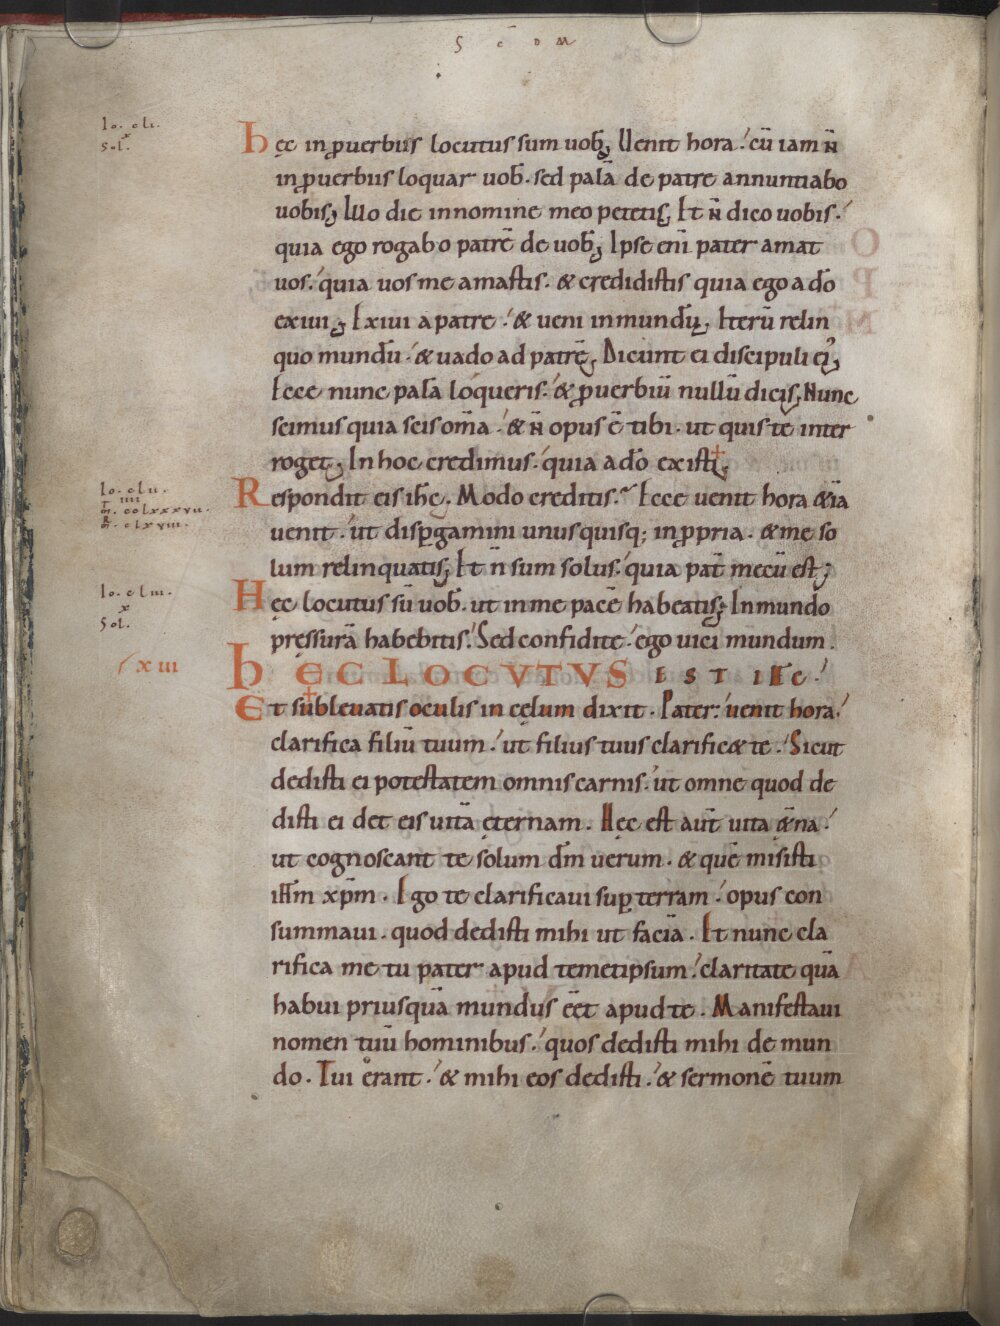 S C D M
Io. cli.
x
Sol.
Hęc in ꝓuerbiis locutus sum uob̄; Uenit hora. cū iam n̄
in ꝓuerbiis loquar uob̄. sed palā de patre annuntiabo
uobis; Illo die in nomine meo petetis; Et n̄ dico uobis.
quia ego rogabo patrē de uob̄; Ipse eni᷑ pater amat
uos. quia uos me amastis. & credidistis quia ego a do̅
exiui; Exiui a patre. & ueni in mundū; Iterū relin
quo mundū. & uado ad patrē; Dicunt ei discipuli ei᷒;
Ecce nunc palā loqueris. & ꝓuerbiū nullū dicis; Nunc
scimus quia scis om̄a. & n̄ opus ē tibi. ut quis te inter
roget; In hoc credimus. quia a do̅ existi;
Io. clii.
IIII
M. cclxxxvii.
R. clxviii.
Respondit eis ih̅c. Modo creditis. Ecce uenit hora & iā
uenit. ut disꝑgamini unusquisq; in ꝓpria. & me so
lum relinquatis; Et n̄ sum solus. quia pat̄ mecū est;
Io. cliii.
x
Sol.
Hęc locutus sū uob̄. ut in me pacē habeatis; In mundo
pressurā habebitis. Sed confidite. ego uici mundum.
xiii
HEC LOCVTVS EST ih̅c.
Et subleuatis oculis in cęlum dixit. Pater. uenit hora.
clarifica filiū tuum. ut filius tuus clarific& te. Sicut
dedisti ei potestatem omnis carnis. ut omne quod de
disti ei det eis uitā ęternam. Hęc est aut̄ uita æ̅na.
ut cognoscant te solum dm̅ uerum. & quē misisti
ih̅m xp̅m. Ego te clarificaui suꝑ terram. opus con
summaui. quod dedisti mihi ut faciā. Et nunc cla
rifica me tu pater apud temetipsum. claritate quā
habui priusquā mundus eēt apud te. Manifestaui
nomen tuū hominibus. quos dedisti mihi de mun
do. Tui erant. & mihi eos dedisti. & sermonē tuum